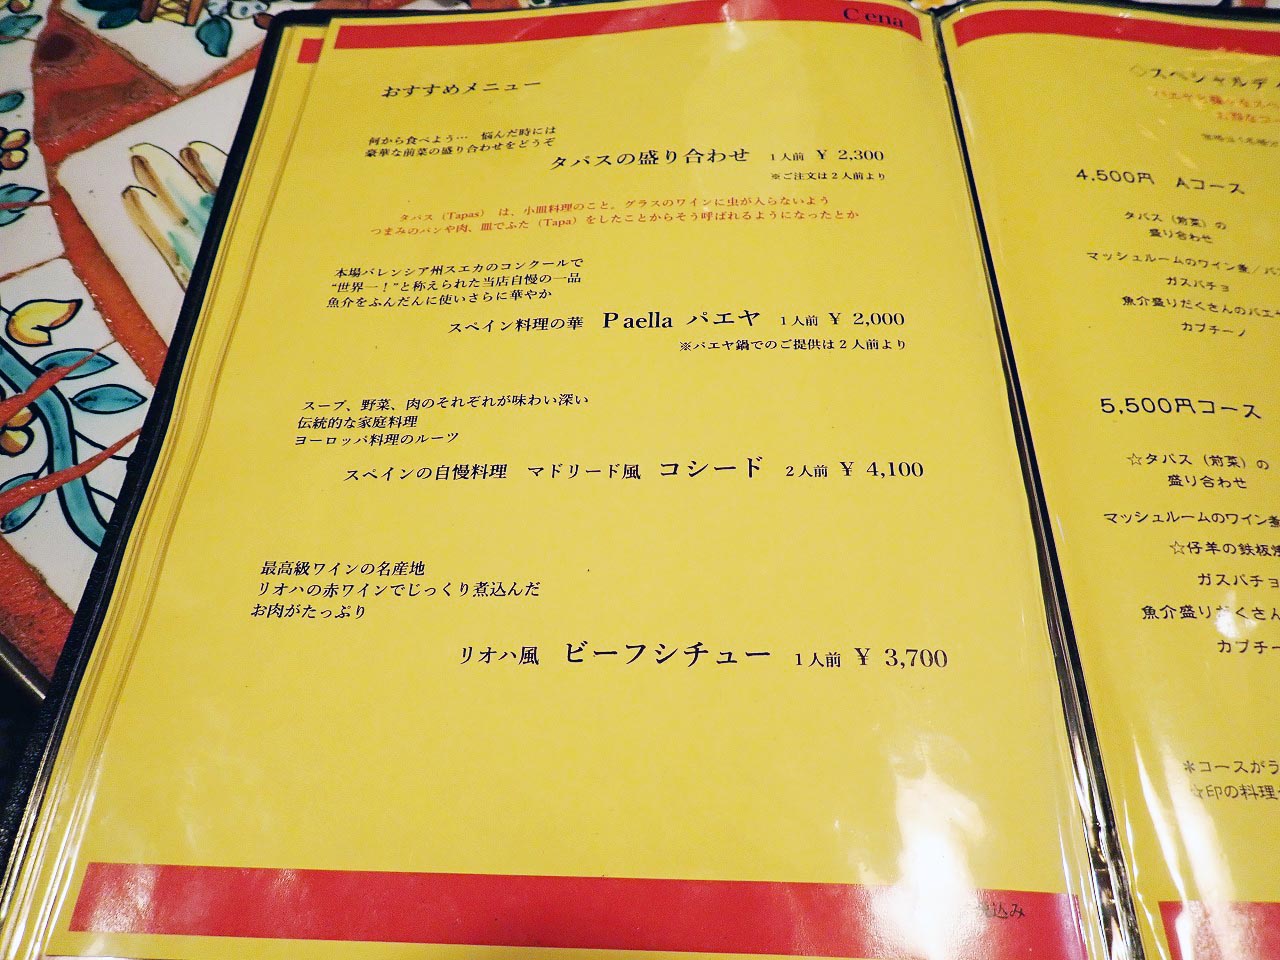 Cena
おすすめメニュー
何から食べよう… 悩んだ時には
豪華な前菜の盛り合わせをどうぞ
タパスの盛り合わせ 1人前 ¥ 2,300
※ご注文は2人前より
タパス（Tapas） は、小皿料理のこと。グラスのワインに虫が入らないよう
つまみのパンや肉、皿でふた（Tapa）をしたことからそう呼ばれるようになったとか
本場バレンシア州スエカのコンクールで
“世界一！”と称えられた当店自慢の一品
魚介をふんだんに使いさらに華やか
スペイン料理の華 Paella パエヤ 1人前 ¥ 2,000
※パエヤ鍋でのご提供は2人前より
スープ、野菜、肉のそれぞれが味わい深い
伝統的な家庭料理
ヨーロッパ料理のルーツ
スペインの自慢料理 マドリード風 コシード 2人前 ¥ 4,100
最高級ワインの名産地
リオハの赤ワインでじっくり煮込んだ
お肉がたっぷり
リオハ風 ビーフシチュー 1人前 ¥ 3,700
込み
◇スペシャルディ
4,500円 Aコース
タパス（前菜）の
盛り合わせ
マッシュルームのワイン煮／バ
ガスパチョ
魚介盛りだくさんのパエ
カプチーノ
5,500円コース
☆タパス（前菜）の
盛り合わせ
マッシュルームのワイン煮
☆仔羊の鉄板焼
ガスパチョ
魚介盛りだくさん
カプチー
＊コースがラ
☆印の料理